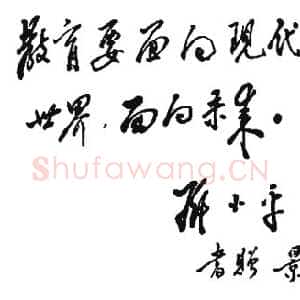 教育要面向现代
世界，面向未来。
Shufawang.CN
邓小平
书赠 景